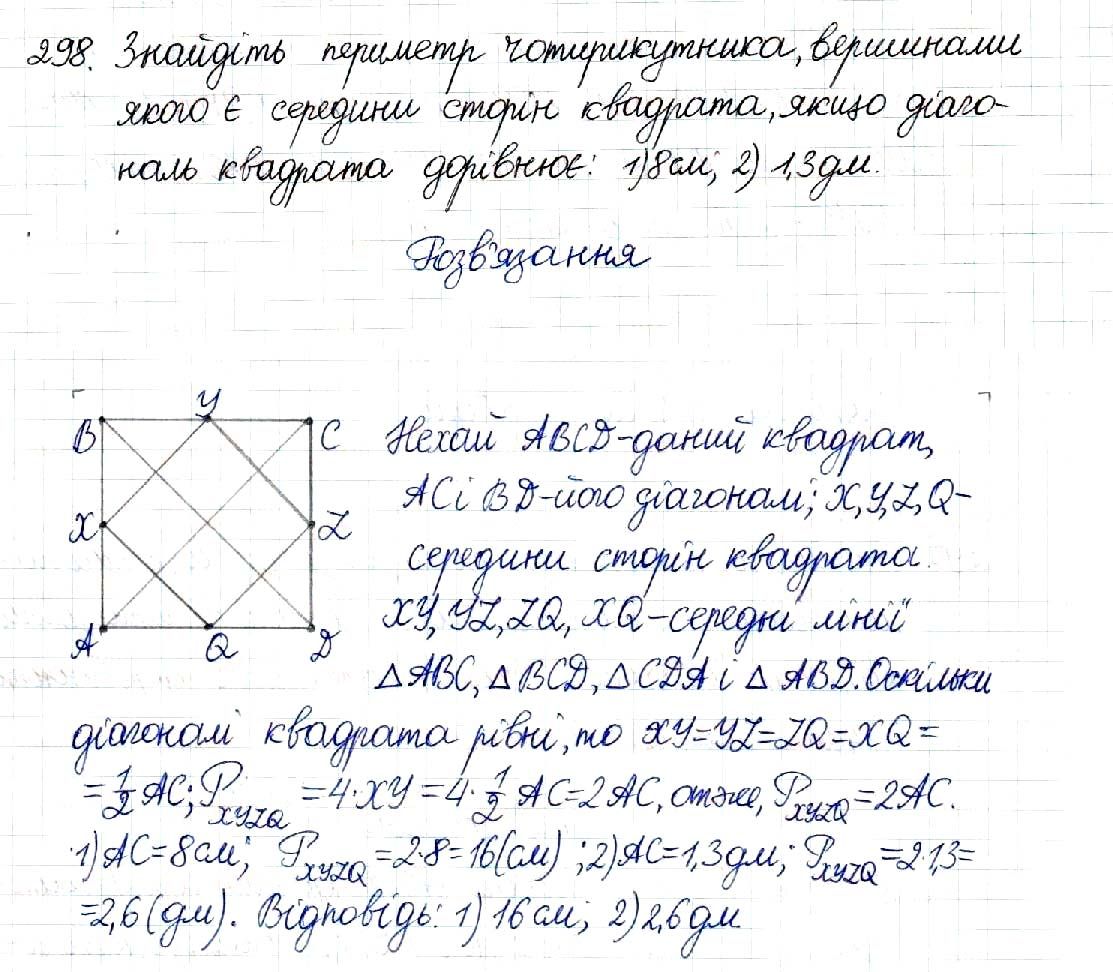 298. Знайдіть периметр чотирикутника, вершинами
якого є середини сторін квадрата, якщо діаго-
наль квадрата дорівнює: 1) 8 см; 2) 1,3 дм.
Розв'язання
B Y C
X Z
A Q D
Нехай ABCD-даний квадрат,
AC і BD-його діагоналі; X, Y, Z, Q-
середини сторін квадрата.
XY, YZ, ZQ, XQ-середні лінії
△ABC, △BCD, △CDA і △ABD. Оскільки
діагоналі квадрата рівні, то XY=YZ=ZQ=XQ=
=1/2 AC; P_XYZQ = 4·XY = 4·1/2 AC=2AC, отже, P_XYZQ=2AC.
1) AC=8см; P_XYZQ=2·8=16(см) ; 2) AC=1,3дм; P_XYZQ=2·1,3=
=2,6(дм). Відповідь: 1) 16 см; 2) 2,6 дм